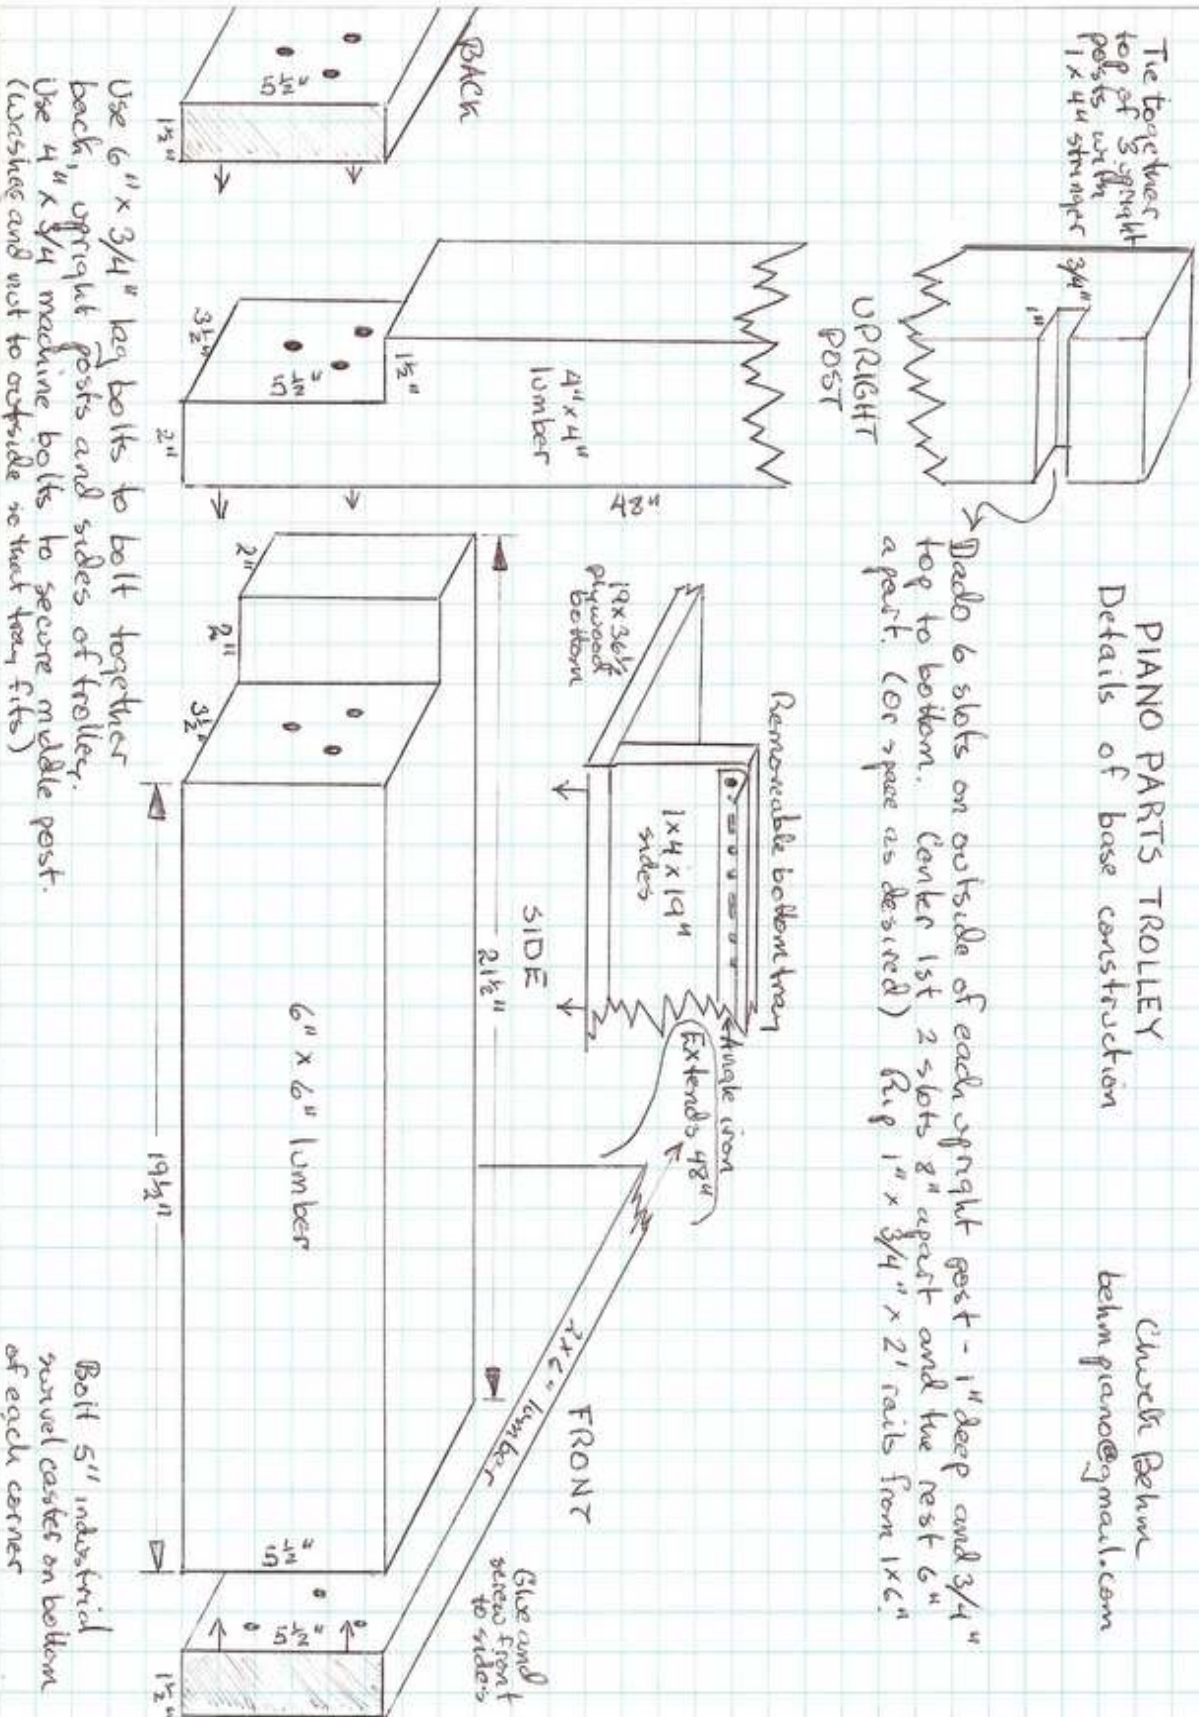 PIANO PARTS TROLLEY
Details of base construction
Chuck Behm
behmpiano@gmail.com
Tie together
top of 3 upright
posts with
1 x 4" stringer
3/4"
1"
Dado 6 slots on outside of each upright post - 1" deep and 3/4"
top to bottom. Center 1st 2 slots 8" apart and the rest 6"
apart. (or space as desired) Rip 1" x 3/4" x 2' rails from 1x6"
UPRIGHT
POST
4" x 4"
lumber
48"
1½"
5½"
3½"
2"
BACK
5½"
1½"
Removeable bottom tray
Angle iron
Extends 48"
1x4x19"
sides
19x36½
plywood
bottom
SIDE
21½"
2"
2"
3½"
6" x 6" lumber
19½"
5½"
FRONT
2x6" lumber
Glue and
screw front
to sides
5½"
1½"
Use 6" x 3/4" lag bolts to bolt together
back, upright posts and sides of trolley.
Use 4" x 3/4 machine bolts to secure middle post.
(washer and nut to outside so that tray fits)
Bolt 5" industrial
swivel caster on bottom
of each corner